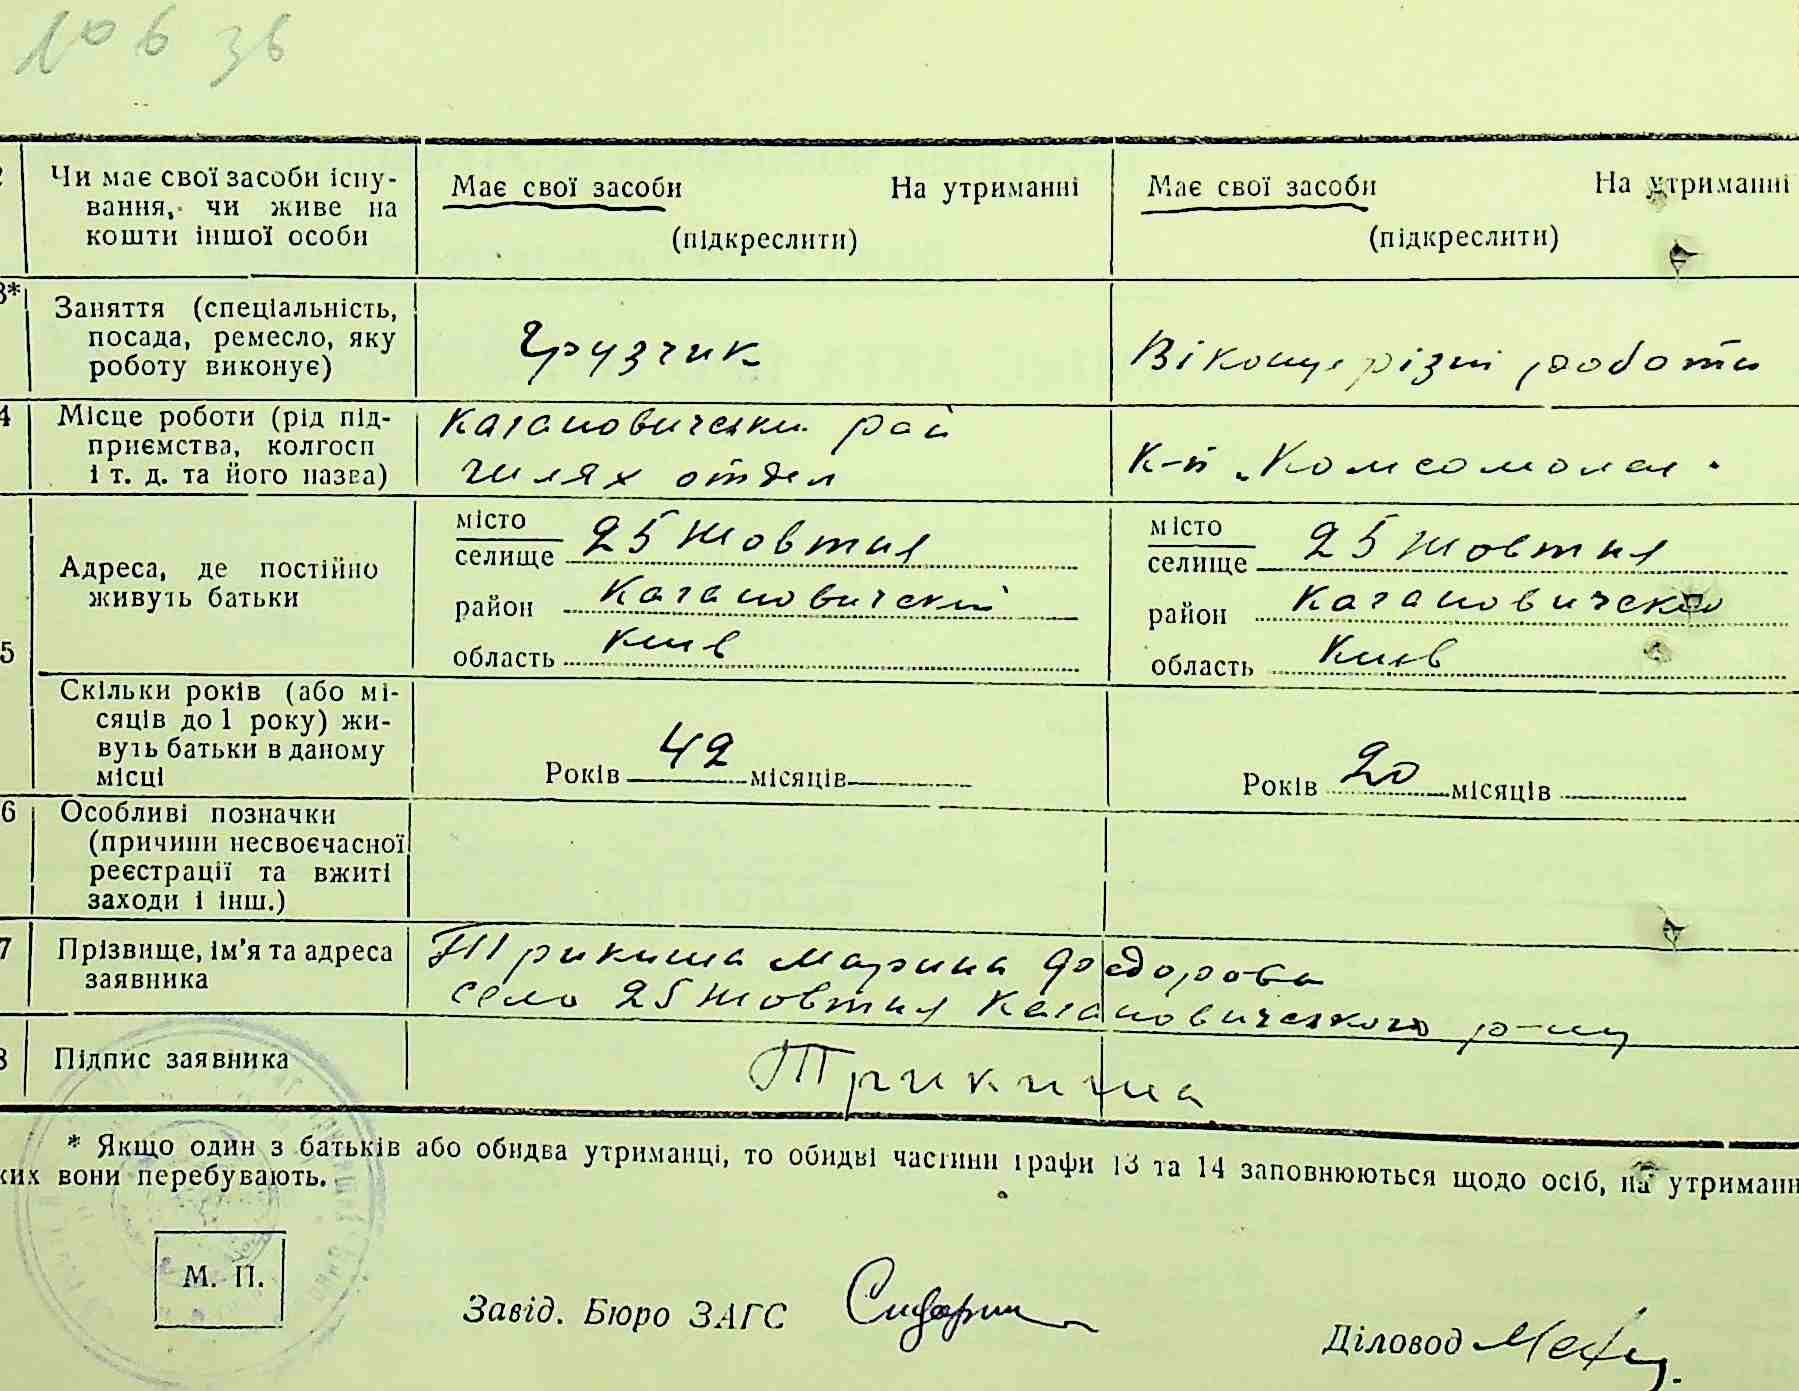 10 6 36
2 Чи має свої засоби існу- Має свої засоби На утриманні Має свої засоби На утриманні
вання, чи живе на
кошти іншої особи (підкреслити) (підкреслити)
3* Заняття (спеціальність,
посада, ремесло, яку Грузчик Віконує різні роботи
роботу виконує)
4 Місце роботи (рід під- Кагановически рай
приємства, колгосп К-п „Комсомолец"
і т. д. та його назва) отдел
місто 25 Жовтня місто 25 Жовтня
Адреса, де постійно селище селище
живуть батьки район Кагановический район Кагановическ
5 область Киів область Киів
Скільки років (або мі-
сяців до 1 року) жи-
вуть батьки в даному Років 42 місяців Років 20 місяців
місці
6 Особливі позначки
(причини несвоєчасної
реєстрації та вжиті
заходи і інш.)
7 Прізвище, ім'я та адреса Трикиша Марина Федорова
заявника село 25 Жовтня Кагановического р-ну
8 Підпис заявника Трикиша
* Якщо один з батьків або обидва утриманці, то обидві частини графи 13 та 14 заповнюються щодо осіб, на утриманн
ких вони перебувають.
М. П.
Завід. Бюро ЗАГС
Діловод